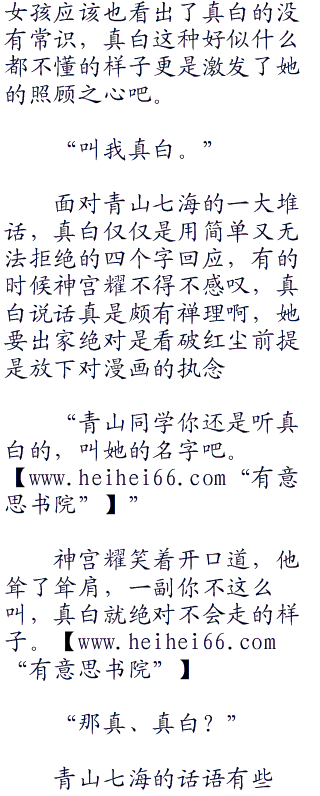 女孩应该也看出了真白的没
有常识，真白这种好似什么
都不懂的样子更是激发了她
的照顾之心吧。
“叫我真白。”
面对青山七海的一大堆
话，真白仅仅是用简单又无
法拒绝的四个字回应，有的
时候神宫耀不得不感叹，真
白说话真是颇有禅理啊，她
要出家绝对是看破红尘前提
是放下对漫画的执念
“青山同学你还是听真
白的，叫她的名字吧。
【www.heihei66.com“有意
思书院”】”
神宫耀笑着开口道，他
耸了耸肩，一副你不这么
叫，真白就绝对不会走的样
子。【www.heihei66.com
“有意思书院”】
“那真、真白？”
青山七海的话语有些